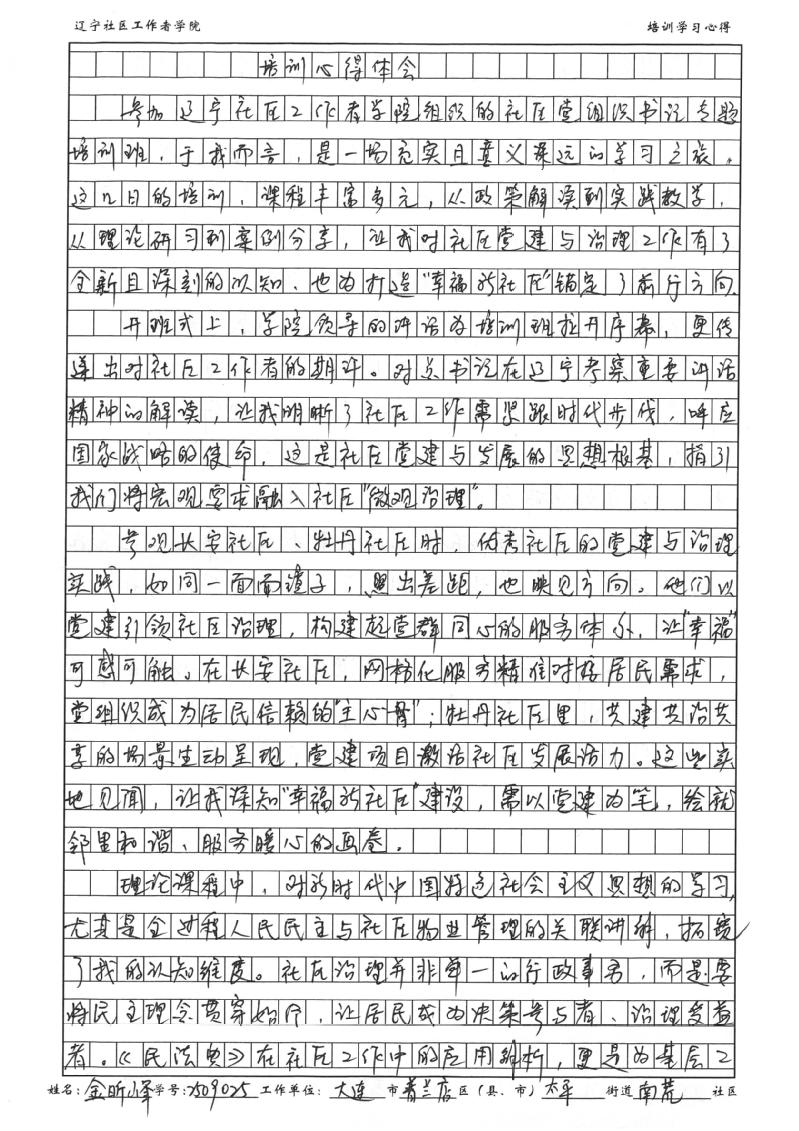 辽宁社区工作者学院 培训学习心得
培训心得体会
参加辽宁社区工作者学院组织的社区党组织书记专题
培训班，于我而言，是一场充实且意义深远的学习之旅。
这几日的培训，课程丰富多元，从政策解读到实践教学，
从理论研习到案例分享，让我对社区党建与治理工作有了
全新且深刻的认知，也为打造“幸福新社区”锚定了前行方向。
开班式上，学院领导的讲话为培训班拉开序幕，更传
递出对社区工作者的期许。对总书记在辽宁考察重要讲话
精神的解读，让我明晰了社区工作需紧跟时代步伐，呼应
国家战略的使命，这是社区党建与发展的思想根基，指引
我们将宏观要求融入社区“微观治理”。
参观长安社区、牡丹社区时，优秀社区的党建与治理
实践，如同一面面镜子，照出差距，也映见方向。他们以
党建引领社区治理，构建起党群同心的服务体系，让“幸福”
可感可触。在长安社区，网格化服务精准对接居民需求，
党组织成为居民信赖的“主心骨”；牡丹社区里，共建共治共
享的场景生动呈现，党建项目激活社区发展活力。这些实
地见闻，让我深知“幸福新社区”建设，需以党建为笔，绘就
邻里和谐、服务暖心的画卷。
理论课程中，对新时代中国特色社会主义思想的学习，
尤其是全过程人民民主与社区物业管理的关联讲解，拓宽
了我的认知维度。社区治理并非单一的行政事务，而是要
将民主理念贯穿始终，让居民成为决策参与者、治理受益
者。《民法典》在社区工作中的应用解析，更是为基层工
姓名：金昕怿 学号：2509025 工作单位：大连市普兰店区（县、市）太平街道南荒社区